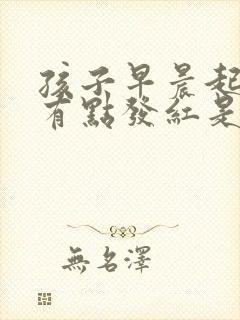 孩子早晨起
有點發紅是
無名澤